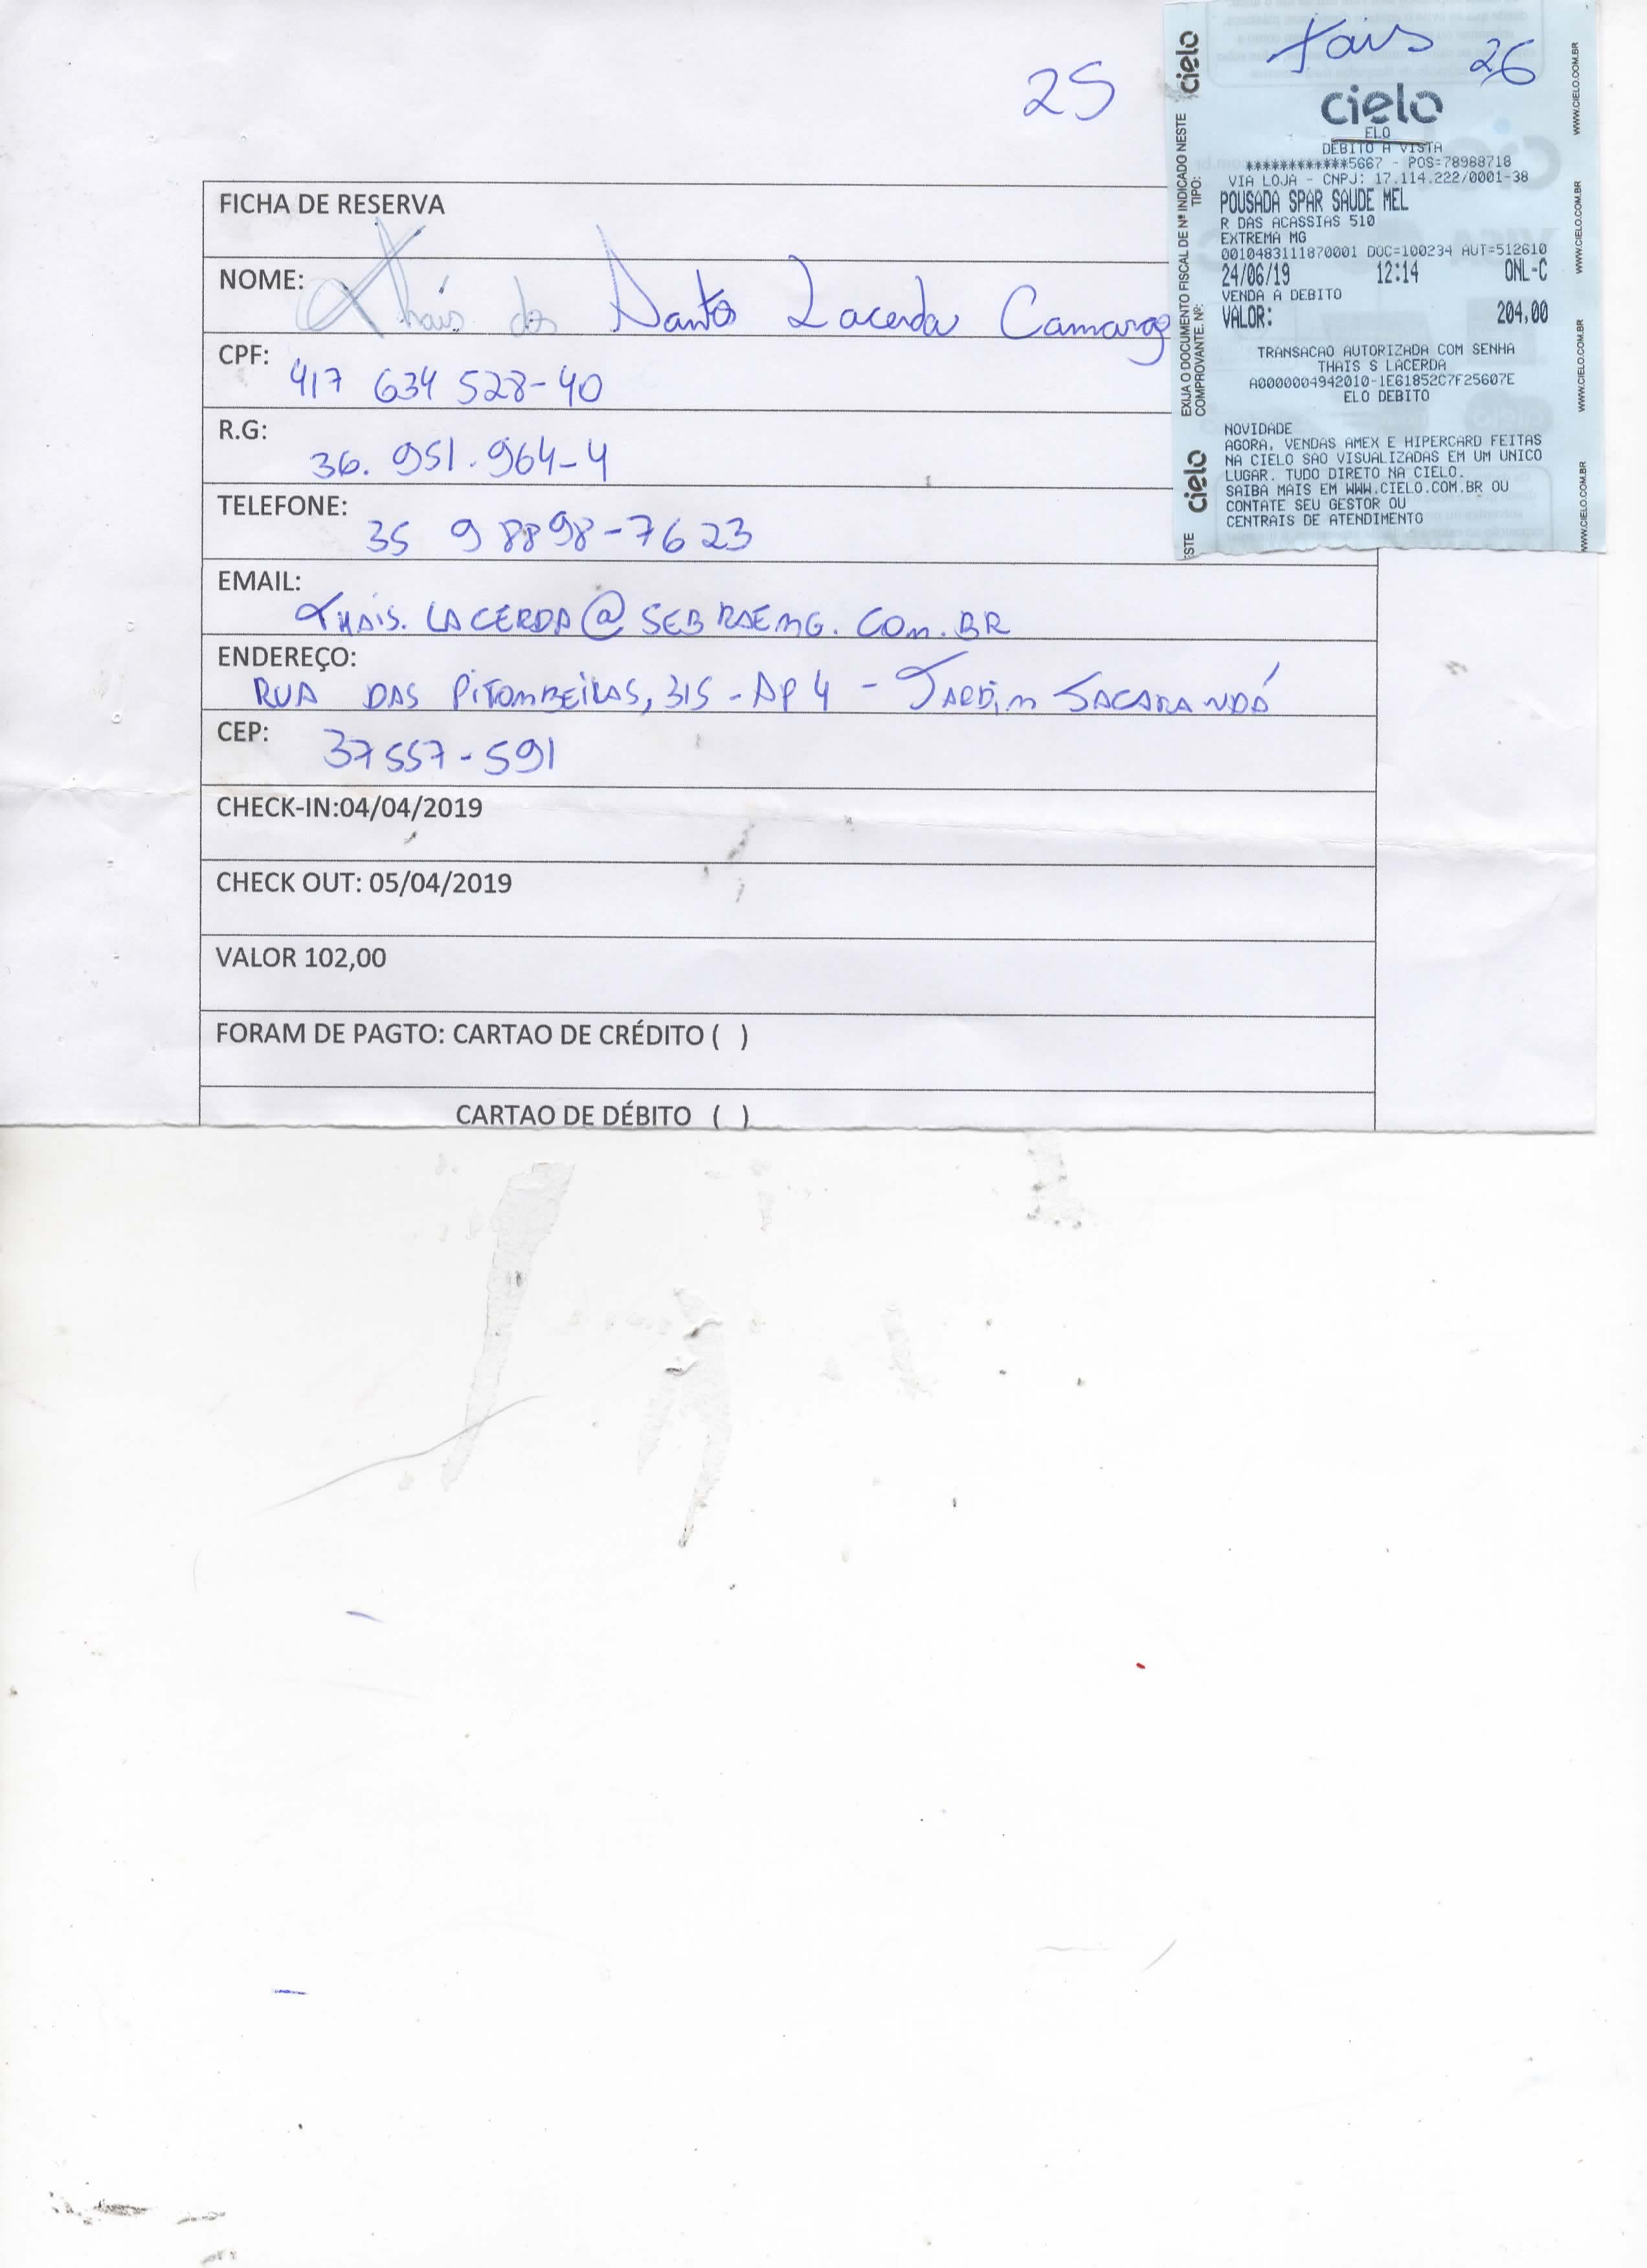 25
FICHA DE RESERVA
NOME: Thaís dos Santos Lacerda Camargo
CPF: 417 634 528-40
R.G: 36. 951. 964-4
TELEFONE: 35 9 8898-7623
EMAIL: THAIS. LACERDA@SEBRAEMG. COM. BR
ENDEREÇO: RUA DAS PITOMBEIRAS, 315 - AP 4 - JARDIM JACARANDÁ
CEP: 37557-591
CHECK-IN:04/04/2019
CHECK OUT: 05/04/2019
VALOR 102,00
FORAM DE PAGTO: CARTAO DE CRÉDITO ( )
CARTAO DE DÉBITO ( )
tais 26
cielo
ELO
DEBITO A VISTA
************5667 - POS=78988718
VIA LOJA - CNPJ: 17.114.222/0001-38
POUSADA SPAR SAUDE MEL
R DAS ACASSIAS 510
EXTREMA MG
0010483111870001 DOC=100234 AUT=512610
24/06/19 12:14 ONL-C
VENDA A DEBITO
VALOR: 204,00
TRANSACAO AUTORIZADA COM SENHA
THAIS S LACERDA
A0000004942010-1E61852C7F25607E
ELO DEBITO
NOVIDADE
AGORA, VENDAS AMEX E HIPERCARD FEITAS
NA CIELO SAO VISUALIZADAS EM UM UNICO
LUGAR. TUDO DIRETO NA CIELO.
SAIBA MAIS EM WWW.CIELO.COM.BR OU
CONTATE SEU GESTOR OU
CENTRAIS DE ATENDIMENTO
cielo
EXIJA O DOCUMENTO FISCAL DE Nº INDICADO NESTE
COMPROVANTE. Nº: TIPO:
cielo
STE
WWW.CIELO.COM.BR
WWW.CIELO.COM.BR
WWW.CIELO.COM.BR
WWW.CIELO.COM.BR